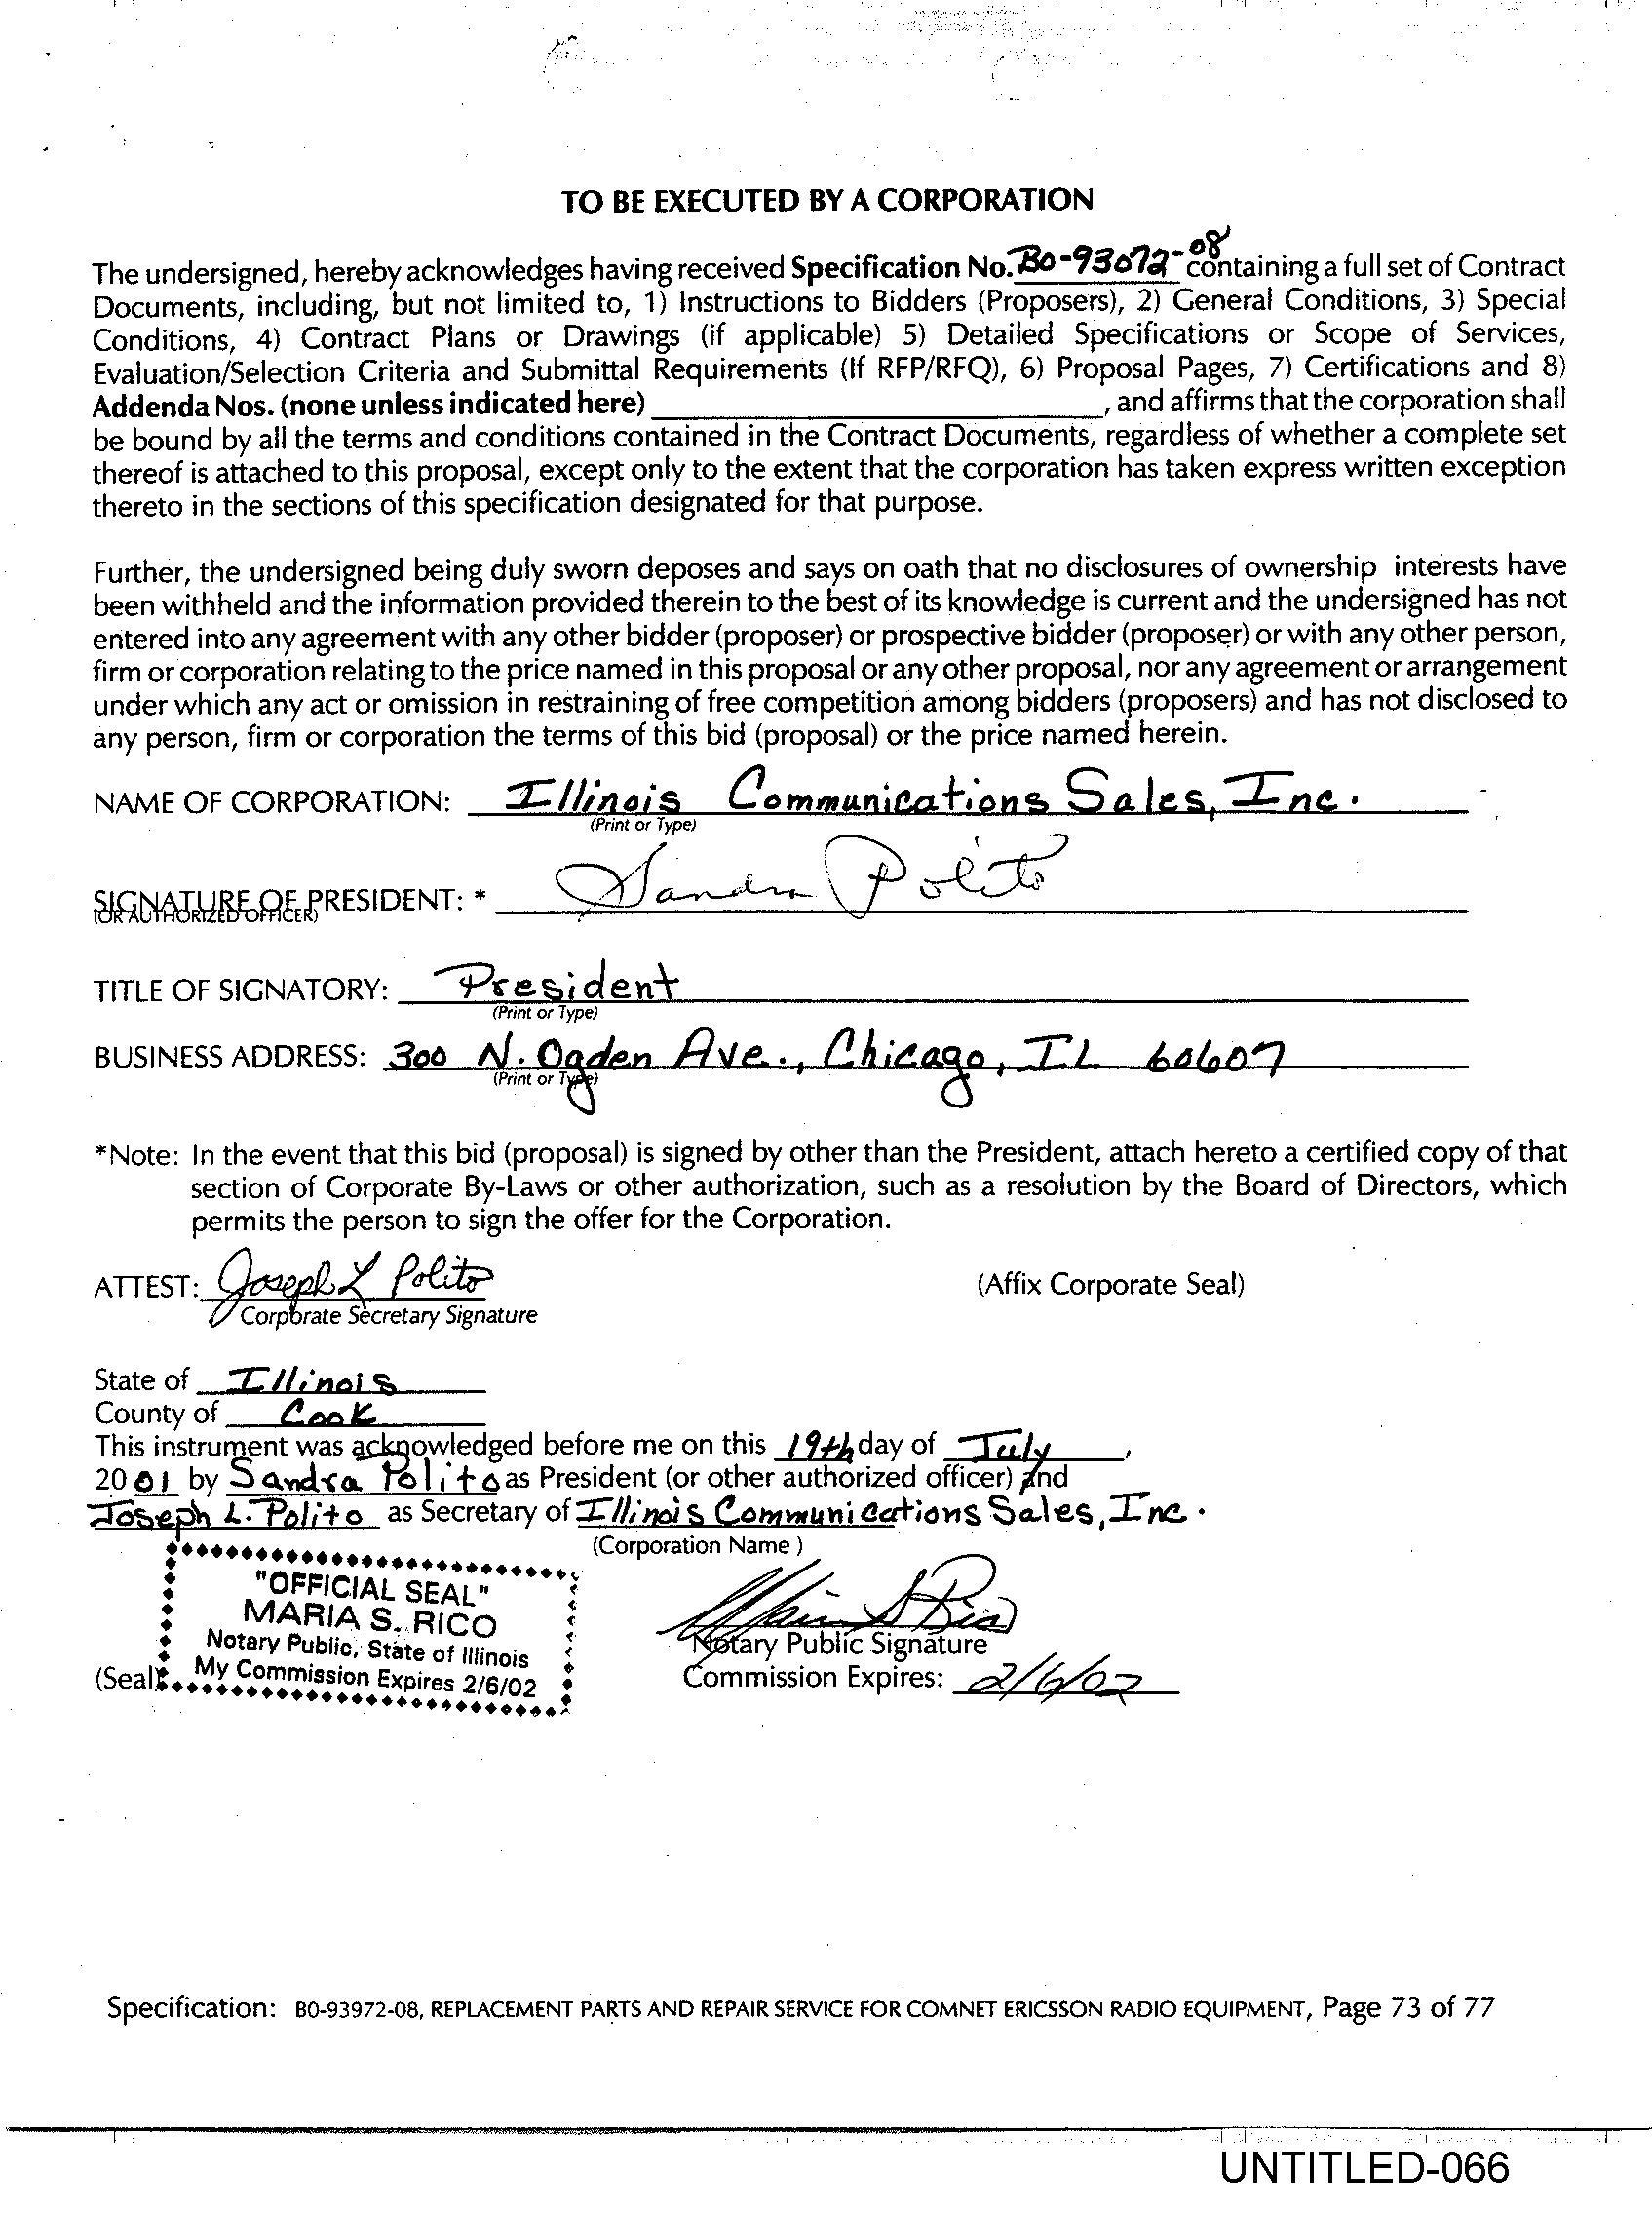 TO BE EXECUTED BY A CORPORATION
The undersigned, hereby acknowledges having received Specification No. BO-93072-08 containing a full set of Contract
Documents, including, but not limited to, 1) Instructions to Bidders (Proposers), 2) General Conditions, 3) Special
Conditions, 4) Contract Plans or Drawings (if applicable) 5) Detailed Specifications or Scope of Services,
Evaluation/Selection Criteria and Submittal Requirements (If RFP/RFQ), 6) Proposal Pages, 7) Certifications and 8)
Addenda Nos. (none unless indicated here) , and affirms that the corporation shall
be bound by all the terms and conditions contained in the Contract Documents, regardless of whether a complete set
thereof is attached to this proposal, except only to the extent that the corporation has taken express written exception
thereto in the sections of this specification designated for that purpose.
Further, the undersigned being duly sworn deposes and says on oath that no disclosures of ownership interests have
been withheld and the information provided therein to the best of its knowledge is current and the undersigned has not
entered into any agreement with any other bidder (proposer) or prospective bidder (proposer) or with any other person,
firm or corporation relating to the price named in this proposal or any other proposal, nor any agreement or arrangement
under which any act or omission in restraining of free competition among bidders (proposers) and has not disclosed to
any person, firm or corporation the terms of this bid (proposal) or the price named herein.
NAME OF CORPORATION: Illinois Communications Sales, Inc.
(Print or Type)
SIGNATURE OF PRESIDENT: * Sandra Polito
(OR AUTHORIZED OFFICER)
TITLE OF SIGNATORY: President
(Print or Type)
BUSINESS ADDRESS: 300 N. Ogden Ave., Chicago, IL 60607
(Print or Type)
*Note: In the event that this bid (proposal) is signed by other than the President, attach hereto a certified copy of that
section of Corporate By-Laws or other authorization, such as a resolution by the Board of Directors, which
permits the person to sign the offer for the Corporation.
ATTEST: Joseph L Polito (Affix Corporate Seal)
Corporate Secretary Signature
State of Illinois
County of Cook
This instrument was acknowledged before me on this 19th day of July,
2001 by Sandra Polito as President (or other authorized officer) and
Joseph L. Polito as Secretary of Illinois Communications Sales, Inc.
(Corporation Name )
"OFFICIAL SEAL"
MARIA S. RICO
Notary Public, State of Illinois
My Commission Expires 2/6/02
(Seal)
Maria S Rico
Notary Public Signature
Commission Expires: 2/6/02
Specification: B0-93972-08, REPLACEMENT PARTS AND REPAIR SERVICE FOR COMNET ERICSSON RADIO EQUIPMENT, Page 73 of 77
UNTITLED-066